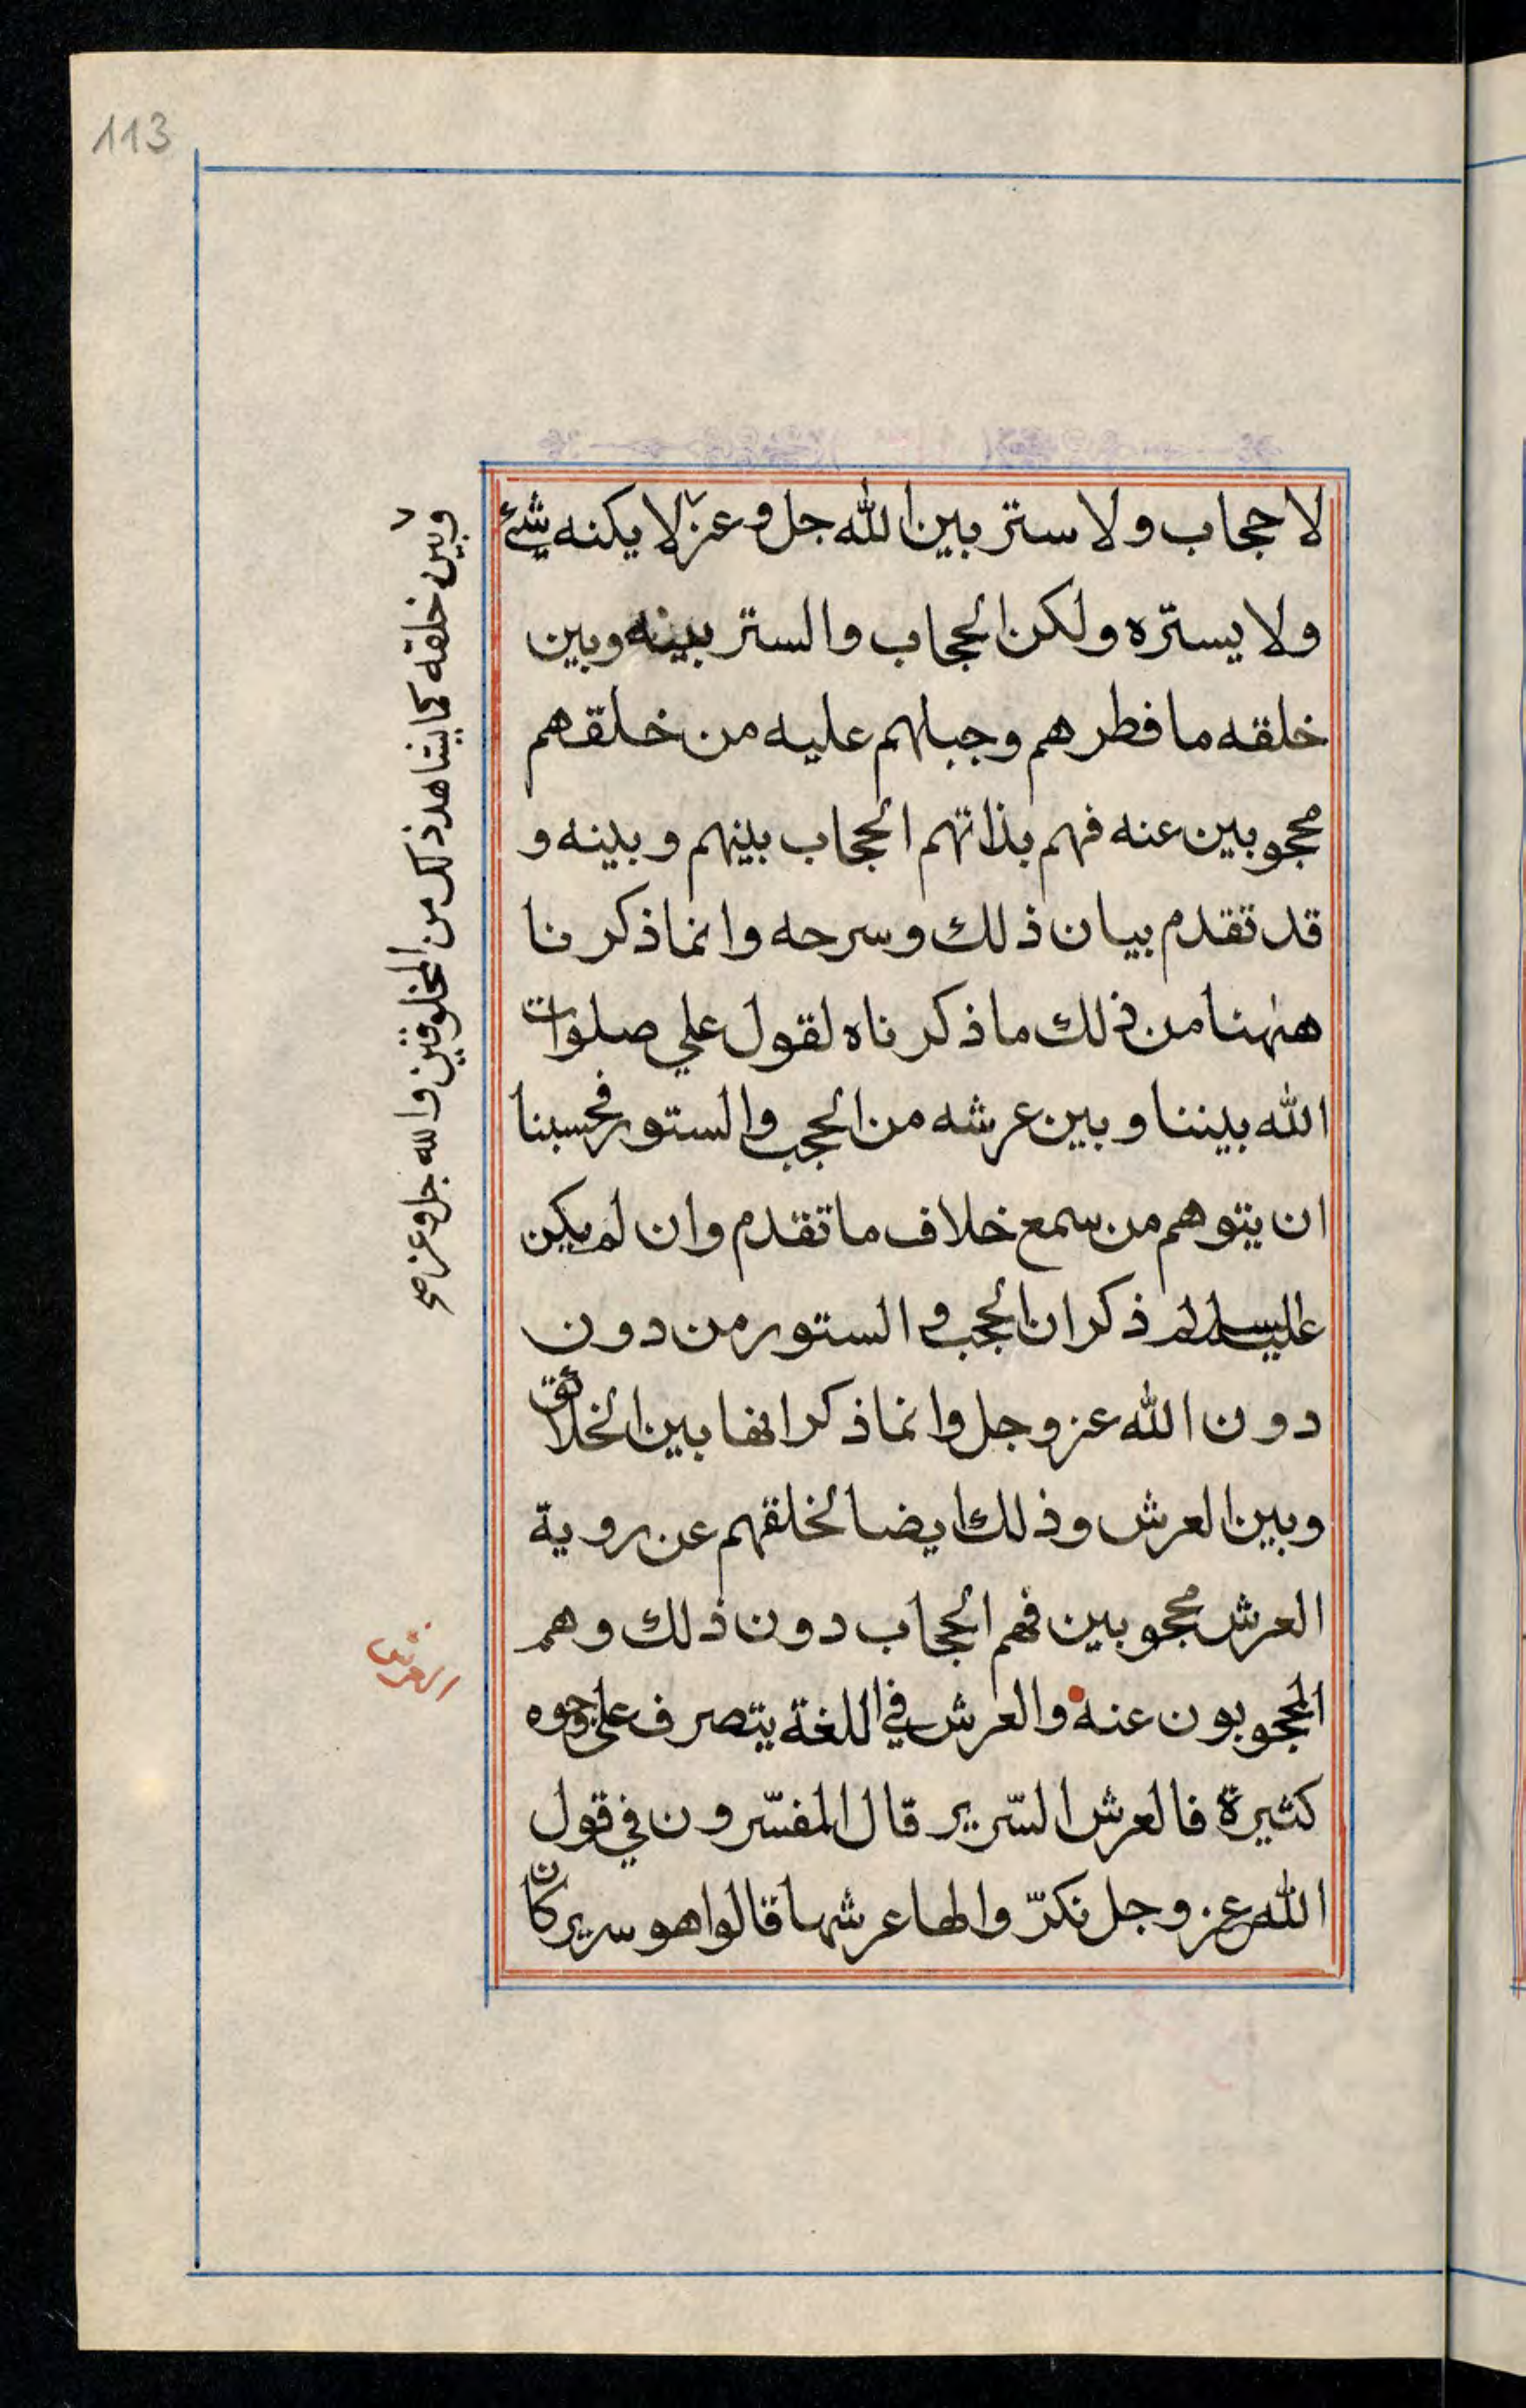 113
لا حجاب ولا ستر بين الله جل وعز لا يكنه شئ
ولا يستره ولكن الحجاب والستر بينه وبين
خلقه ما فطرهم وجبلهم عليه من خلقهم
محجوبين عنه فهم بذاتهم الحجاب بينهم وبينه و
قد تقدم بيان ذلك وسرحه وانما ذكرنا
ههنا من ذلك ما ذكرناه لقول علي صلوات
الله بيننا وبين عرشه من الحجب والستور فحسبنا
ان يتوهم من سمع خلاف ما تقدم وان لم يكن
عليه السلام ذكر ان الحجب والستور من دون
دون الله عز وجل وانما ذكر انها بين الخلائق
وبين العرش وذلك ايضا لخلقهم عن روية
العرش محجوبين فهم الحجاب دون ذلك وهم
المحجوبون عنه والعرش في اللغة يتصرف على وجوه
كثيرة فالعرش السّرير قال المفسّرون في قول
الله عز وجل نكرّوا لها عرشها قالوا هو سرير كان
وبين خلقه كما يشاهد ذلك من المخلوقين والله جل وعز صح
العرش